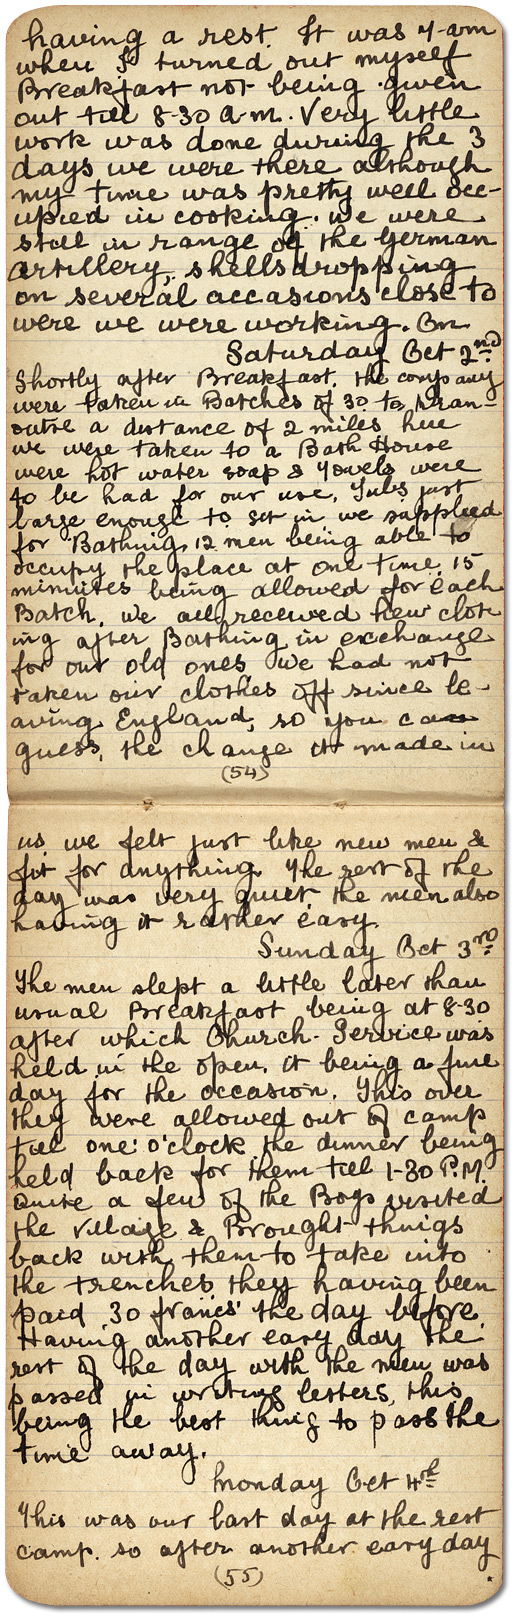 having a rest. It was 7-am
when I turned out myself
Breakfast not being given
out till 8-30 a.m. Very little
work was done during the 3
days we were there although
my time was pretty well occ-
upied in cooking. we were
still in range of the German
artillery, shells dropping
on several occasions close to
were we were working. On
Saturday Oct 2nd
Shortly after Breakfast, the company
were taken in Batches of 30 to
a distance of 2 miles
we were taken to a Bath House
were hot water soap & Towels were
to be had for our use, Tubs just
large enough to set in we supplied
for Bathing, 12 men being able to
occupy the place at one time, 15
minuites being allowed for each
Batch, we all received new cloth
ing after Bathing in exchange
for our old ones, we had not
taken our clothes off since le-
aving England, so you can
guess, the change it made in
(54)
us, we felt just like new men &
fit for anything. The rest of the
day was very quiet the men also
having it rather easy.
Sunday Oct 3rd
The men slept a little later than
usual Breakfast being at 8-30
after which Church-Service was
held in the open, it being a fine
day for the occasion. This over
they were allowed out of camp
till one o'clock the dinner being
held back for them till 1-30 P.M.
Quite a few of the Boys visited
the village & Brought things
back with them to take into
the trenches, they having been
paid 30 francs the day before.
Having another easy day the
rest of the day with the men was
passed in writing letters, this
being the best thing to pass the
time away.
Monday Oct 4th
This was our last day at the rest
camp. so after another easy day
(55)